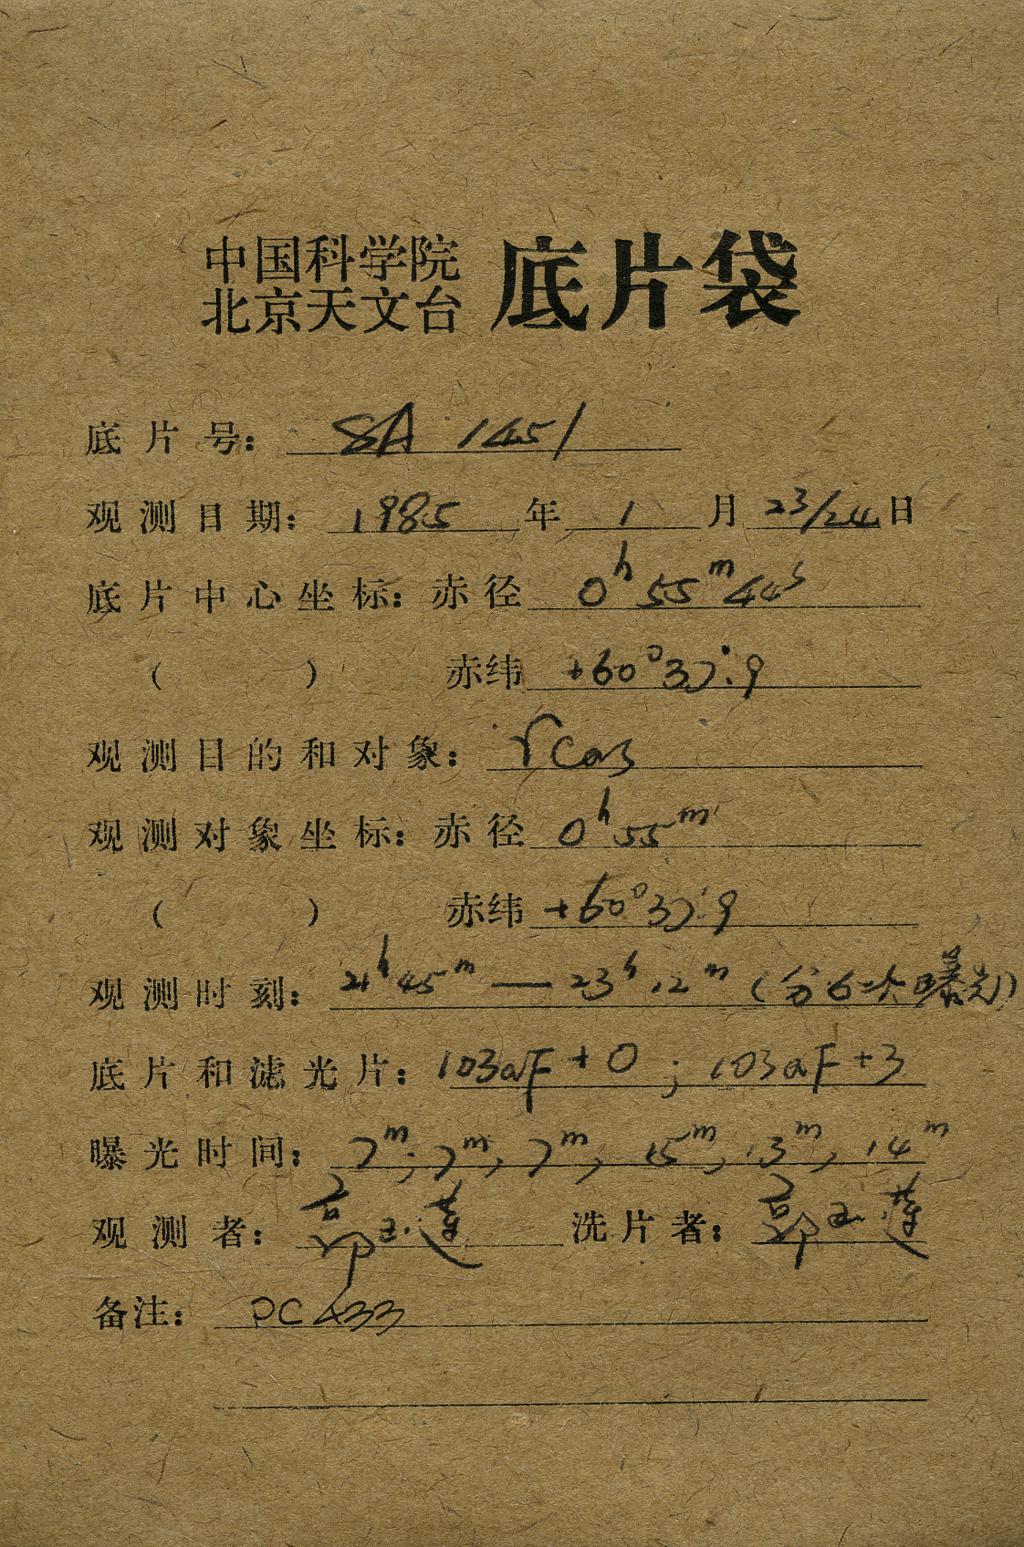 中国科学院
北京天文台 底片袋
底片号: SA 1451
观测日期: 1985 年 1 月 23/24 日
底片中心坐标: 赤径 0h 55m 44s
( ) 赤纬 +60°37′.9
观测目的和对象: γ Cas
观测对象坐标: 赤径 0h 55m
( ) 赤纬 +60°37′.9
观测时刻: 21h 45m — 23h 12m (分6次曝光)
底片和滤光片: 103aF + 0 ; 103aF + 3
曝光时间: 7m, 7m, 7m, 15m, 13m, 14m
观测者: 郭玉莲 洗片者: 郭玉莲
备注: PC 433